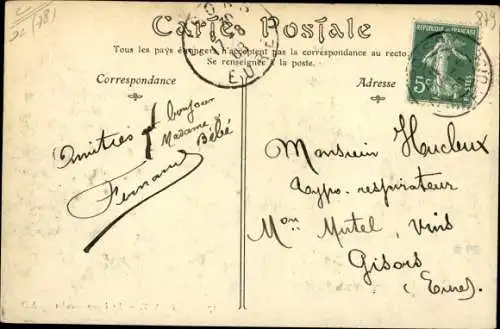 Cartes Postale
Tous les pays étrangers n'acceptent pas la correspondance au recto.
Se renseigner à la poste.
Correspondance
Adresse
REPUBLIQUE FRANÇAISE
5c
POSTES
Amitiés et bonjour
Madame &
Bébé
Fernand
Monsieur Haucleux
respirateur
Mon Mutel, Vins
Gisors
(Eure)
EURE